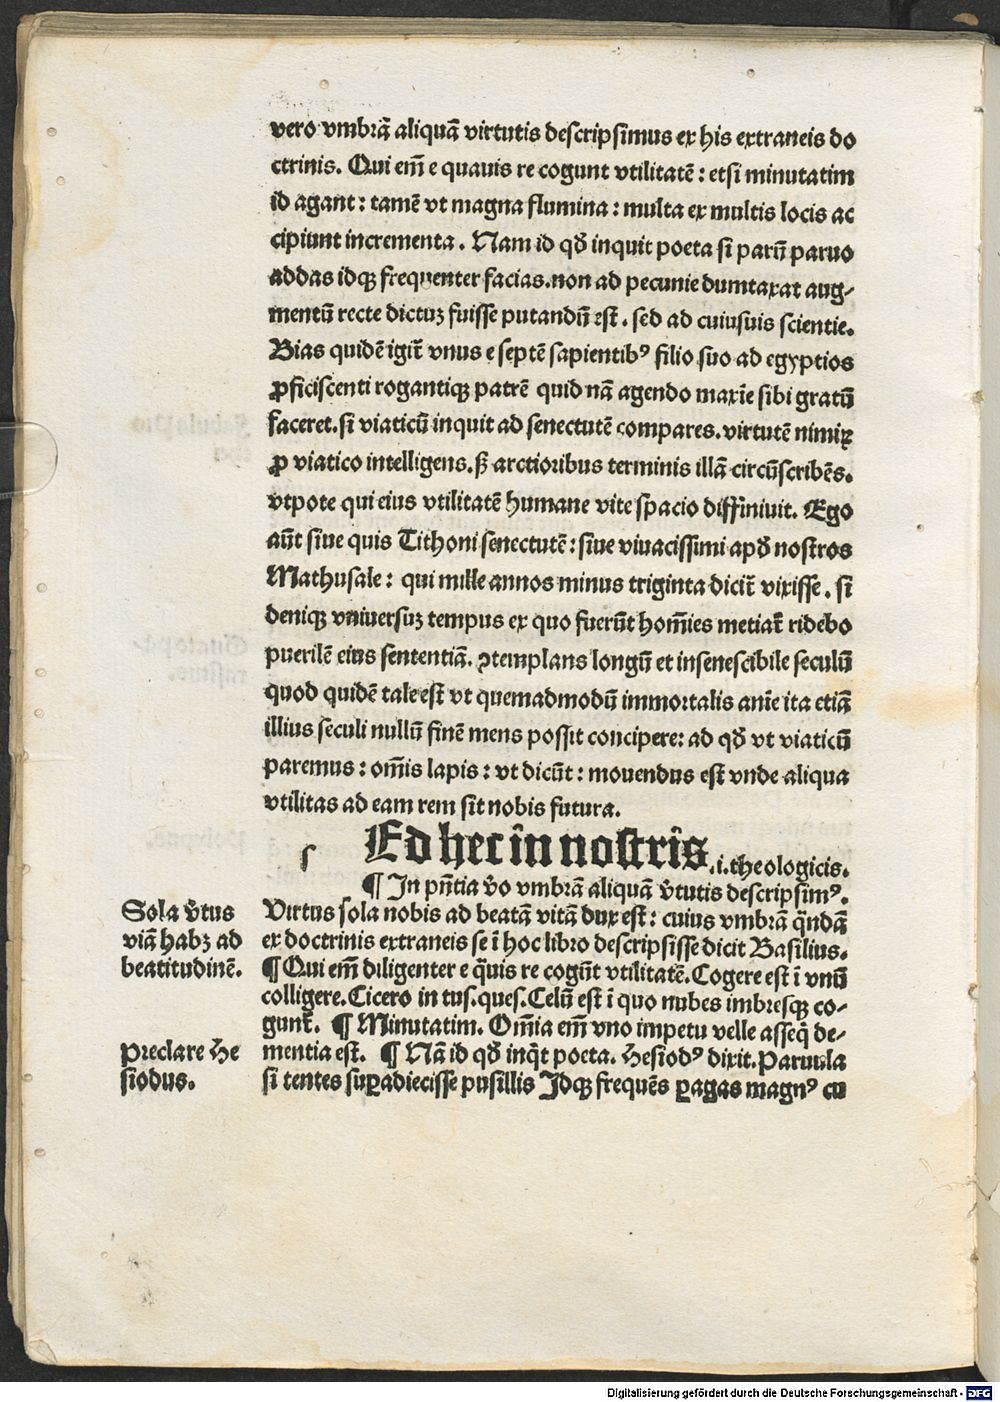 vero vmbrã aliquã virtutis descripsimus ex his extraneis do
ctrinis. Qui em̃ e quauis re cogunt vtilitatẽ : etsi minutatim
id agant : tamẽ vt magna flumina : multa ex multis locis ac
cipiunt incrementa. Nam id qđ inquit poeta si parũ paruo
addas idqꝫ frequenter facias.non ad pecunie dumtaxat aug-
mentũ recte dictuz fuisse putandũ est. sed ad cuiusuis scientie.
Bias quidẽ igit̃ vnus e septẽ sapientibꝰ filio suo ad egyptios
ꝓficiscenti rogantiqꝫ patrẽ quid nã agendo maxĩe sibi gratũ
faceret.si viaticũ inquit ad senectutẽ compares.virtutẽ nimiꝝ
ꝓ viatico intelligens.sꝫ arctioribus terminis illã circũscribẽs.
vtpote qui eius vtilitatẽ humane vite spacio diffiniuit. Ego
aũt siue quis Tithoni senectutẽ : siue viuacissimi apđ nostros
Mathusale : qui mille annos minus triginta dicit̃ vixisse. si
deniqꝫ vniuersuz tempus ex quo fuerũt hom̃ies metiat̃ ridebo
puerilẽ eius sententiã. ꝯtemplans longũ et insenescibile seculũ
quod quidẽ tale est vt quemadmodũ immortalis anĩe ita etiã
illius seculi nullũ finẽ mens possit concipere: ad qđ vt viaticũ
paremus : om̃is lapis : vt dicũt : mouendus est vnde aliqua
vtilitas ad eam rem sit nobis futura.
ſ Ed hec ĩn nostrĩs .i.theologicis.
¶ In pñtia ṽo vmbrã aliquã ṽtutis descripsimꝰ.
Sola ṽtus
viã habꝫ ad
beatitudinẽ.
Virtus sola nobis ad beatã vitã dux est : cuius vmbrã q̃ndã
ex doctrinis extraneis se ĩ hoc libro descripsisse dicit Basilius.
¶ Qui em̃ diligenter e q̃uis re cogũt vtilitatẽ. Cogere est ĩ vnũ
colligere. Cicero in tus.ques. Celũ est ĩ quo nubes imbresqꝫ co-
gunt̃. ¶ Minutatim. Om̃ia em̃ vno impetu velle asseq̃ de-
Preclare He
siodus.
mentia est. ¶ Nã id qđ inq̃t poeta. Hesiodꝰ dixit. Paruula
si tentes suꝑadiecisse pusillis Idqꝫ frequẽs ꝑagas magnꝰ cu
Digitalisierung gefördert durch die Deutsche Forschungsgemeinschaft - DFG